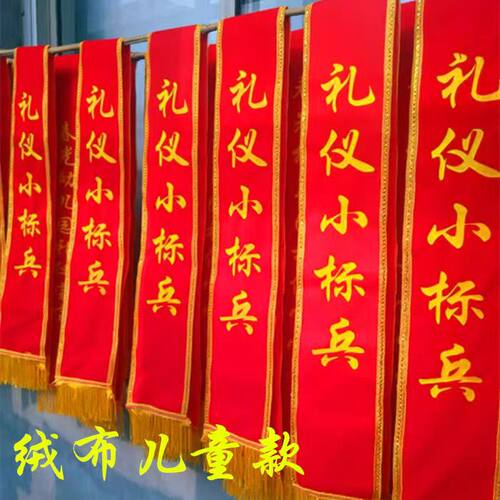 礼仪小标兵
礼仪小标兵
礼仪小标兵
礼仪小标兵
礼仪小标兵
礼仪小标兵
绒布儿童款